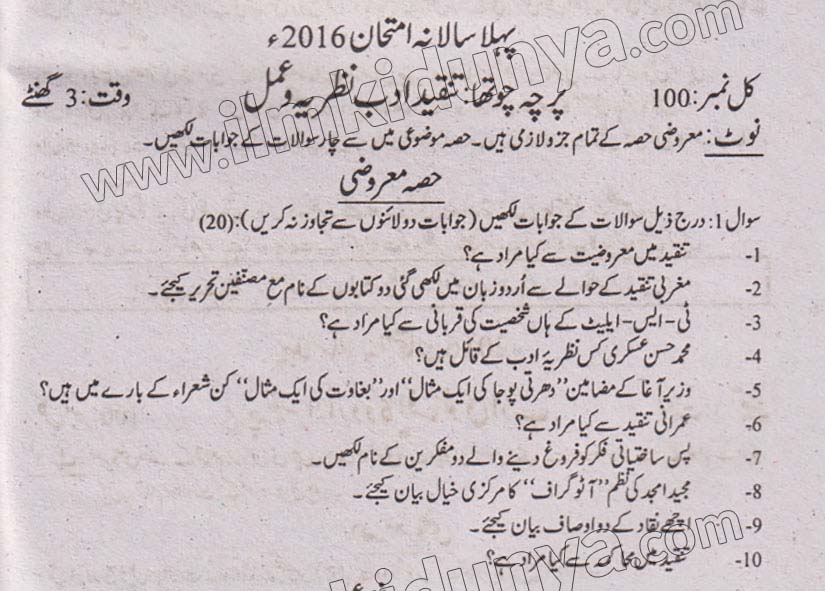 پہلا سالانہ امتحان 2016ء
کل نمبر: 100 پرچہ چوتھا: تنقید ادب نظریہ و عمل وقت: 3 گھنٹے
نوٹ: معروضی حصہ کے تمام جزو لازمی ہیں۔ حصہ موضوعی میں سے چار سوالات کے جوابات لکھیں۔
حصہ معروضی
سوال 1: درج ذیل سوالات کے جوابات لکھیں (جوابات دو لائنوں سے تجاوز نہ کریں): (20)
1- تنقید میں معروضیت سے کیا مراد ہے؟
2- مغربی تنقید کے حوالے سے اُردو زبان میں لکھی گئی دو کتابوں کے نام مع مصنفین تحریر کیجئے۔
3- ٹی-ایس-ایلیٹ کے ہاں شخصیت کی قربانی سے کیا مراد ہے؟
4- محمد حسن عسکری کس نظریۂ ادب کے قائل ہیں؟
5- وزیر آغا کے مضامین "دھرتی پوجا کی ایک مثال" اور "بغاوت کی ایک مثال" کن شعراء کے بارے میں ہیں؟
6- عمرانی تنقید سے کیا مراد ہے؟
7- پس ساختیاتی فکر کو فروغ دینے والے دو مفکرین کے نام لکھیں۔
8- مجید امجد کی نظم "آٹو گراف" کا مرکزی خیال بیان کیجئے۔
9- اچھے نقاد کے دو اوصاف بیان کیجئے۔
10- تنقید میں محاکمہ سے کیا مراد ہے؟
www.ilmkidunya.com
www.ilmkidunya.com